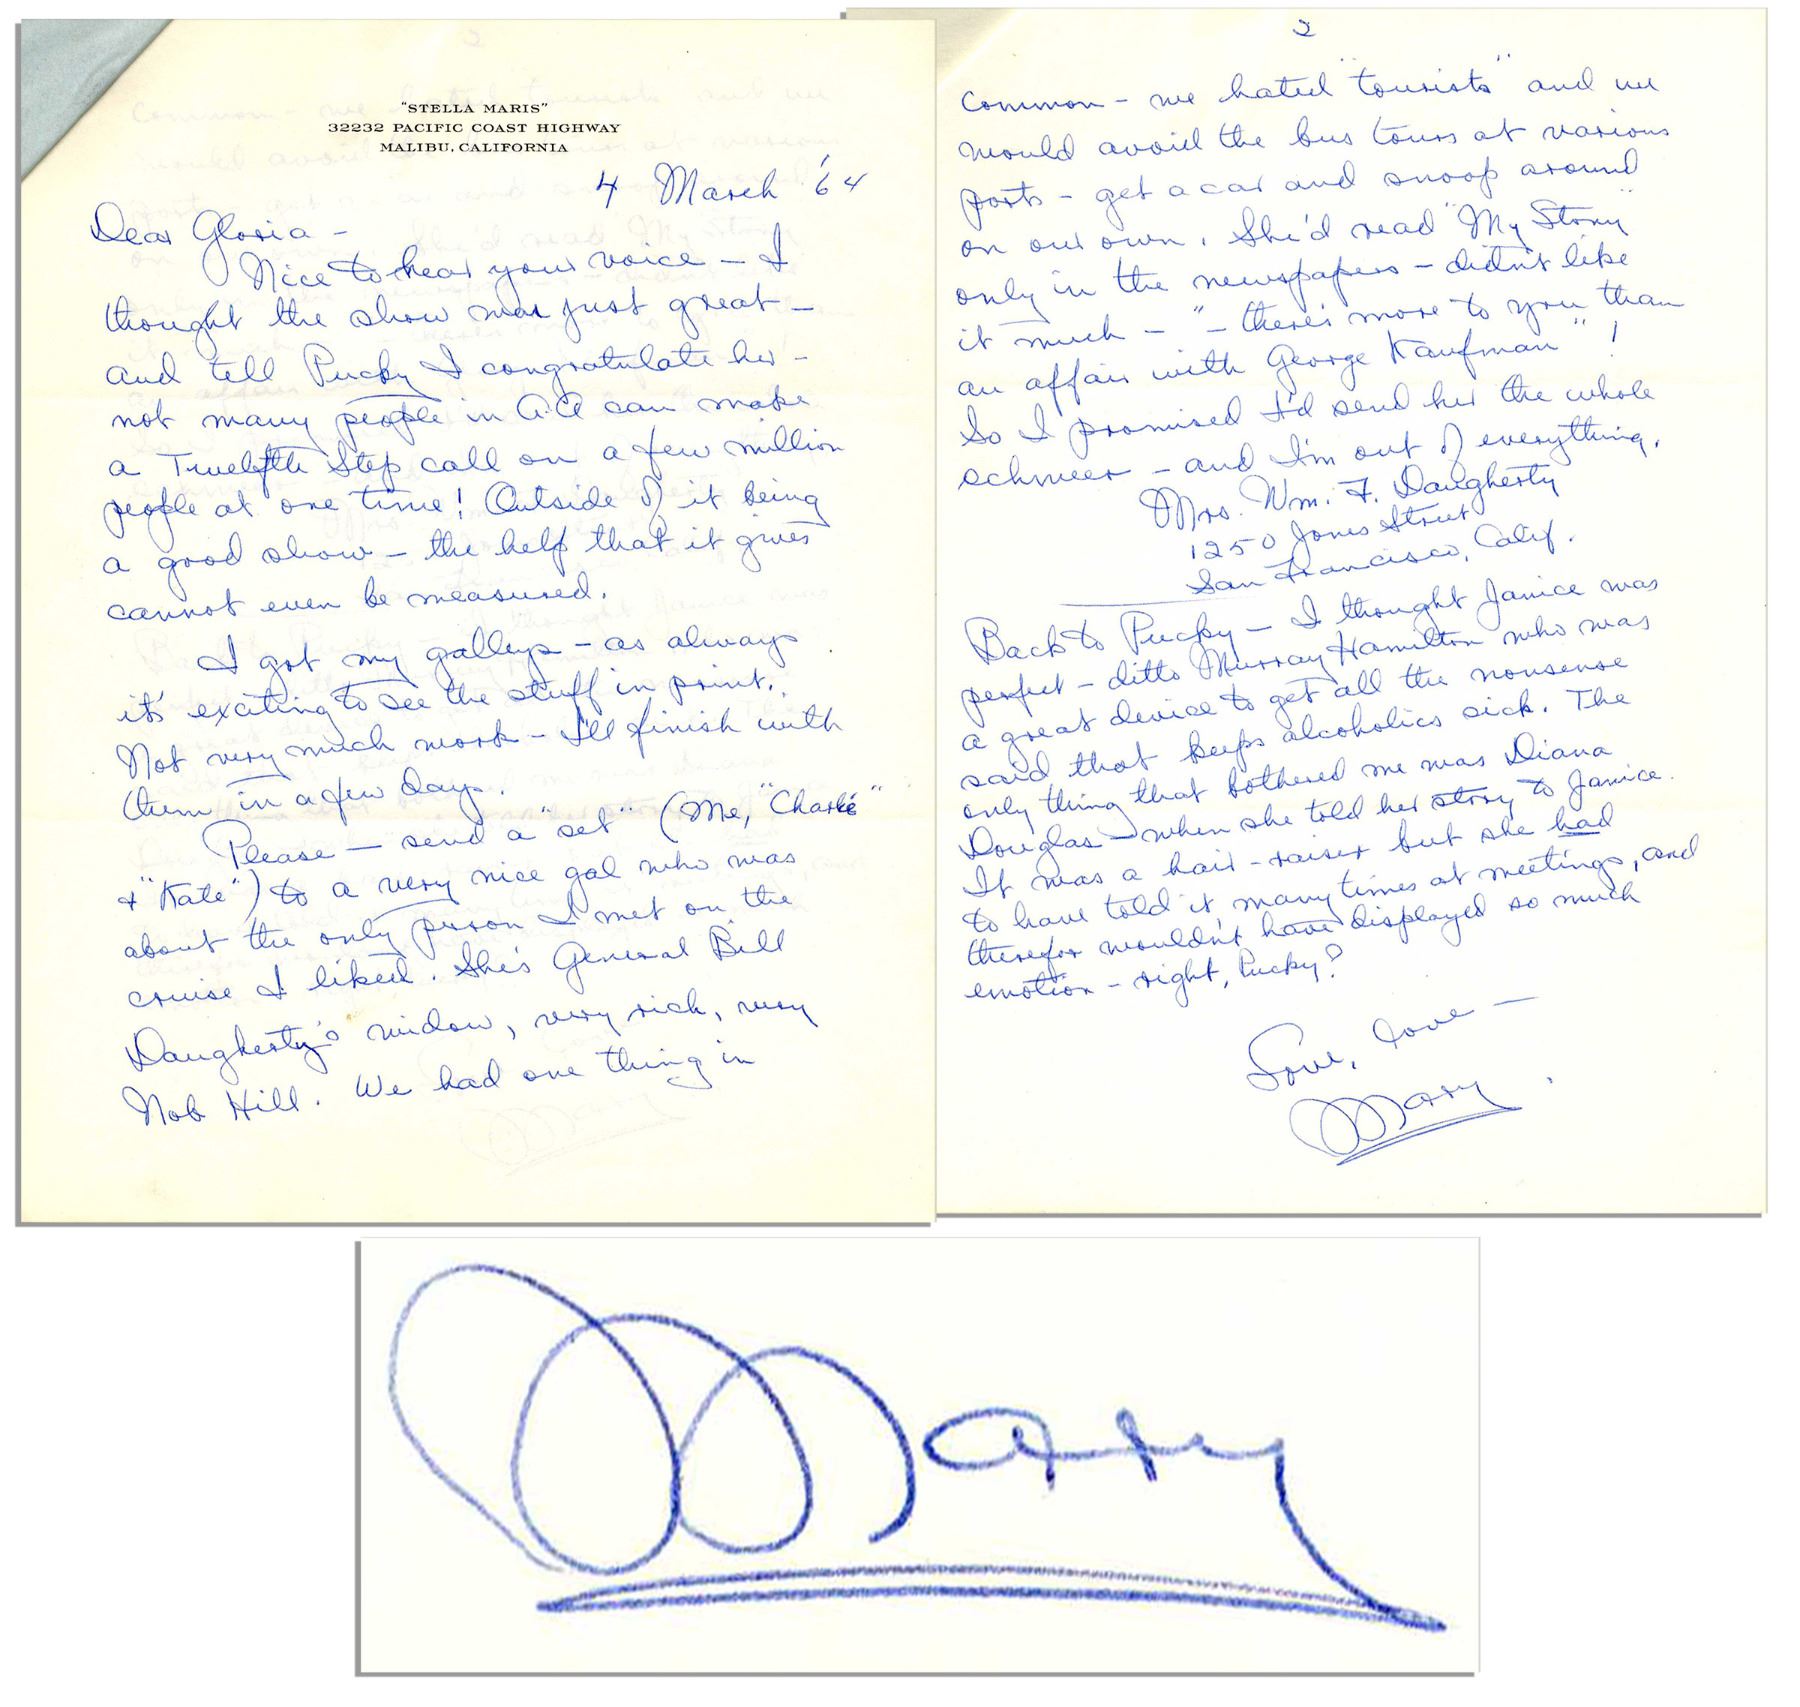 "STELLA MARIS"
32232 PACIFIC COAST HIGHWAY
MALIBU, CALIFORNIA
4 March '64
Dear Gloria -
Nice to hear your voice - I
thought the show was just great -
and tell Pucky I congratulate her -
not many people in A.A can make
a Twelfth Step call on a few million
people at one time! Outside of it being
a good show - the help that it gives
cannot even be measured.
I got my galleys - as always
it's exciting to see the stuff in print.
Not very much work - I'll finish with
them in a few days.
Please - send a "set" (Me, "Charlie"
+ "Kate") to a very nice gal who was
about the only person I met on the
cruise I liked. She's General Bill
Daugherty's widow, very rich, very
Nob Hill. We had one thing in
2
common - we hated "tourists" and we
would avoid the bus tours at various
ports - get a car and snoop around
on our own. She'd read "My Story"
only in the newspapers - didn't like
it much - "- there's more to you than
an affair with George Kaufman"!
So I promised I'd send her the whole
schmeer - and I'm out of everything.
Mrs. Wm. F. Daugherty
1250 Jones Street
San Francisco, Calif.
Back to Pucky - I thought Janice was
perfect - ditto Murray Hamilton who was
a great device to get all the nonsense
said that keeps alcoholics sick. The
only thing that bothered me was Diana
Douglas - when she told her story to Janice.
It was a hair-raiser but she had
to have told it many times at meetings, and
therefor wouldn't have displayed so much
emotion - right, Pucky?
Love, love -
Mary
Mary